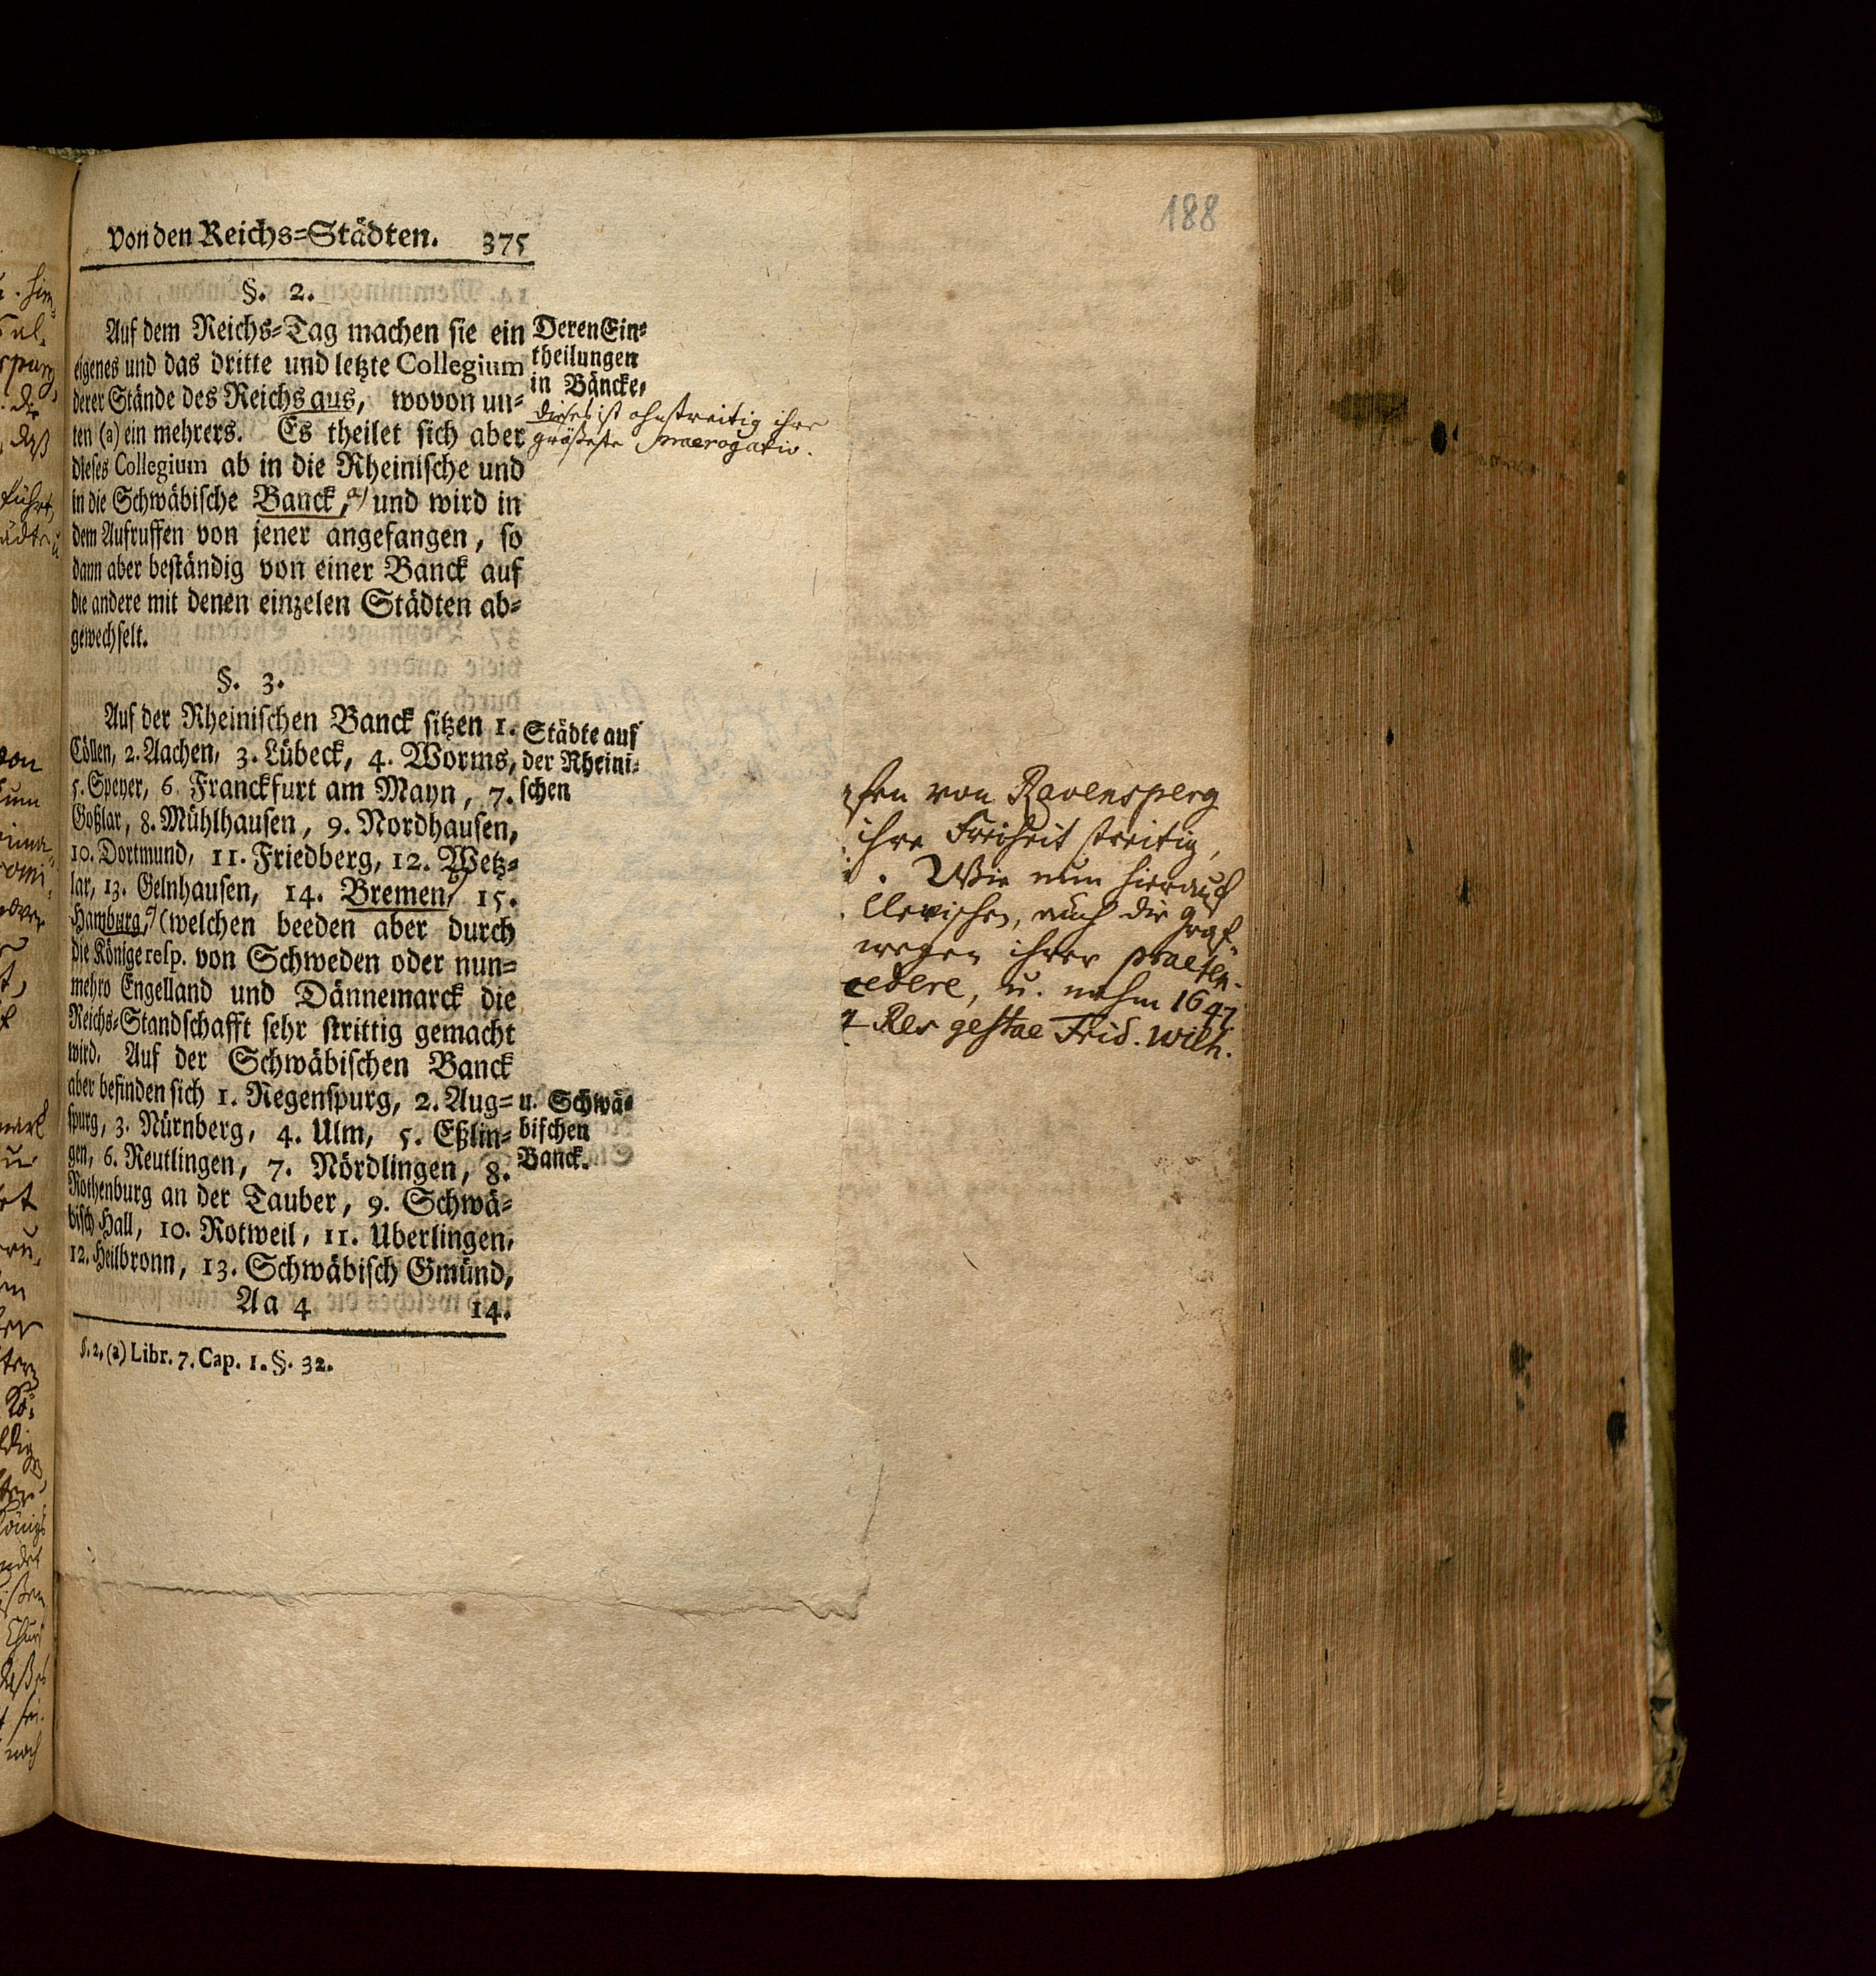 188
von den Reichs=Städten. 375
§. 2.
Auf dem Reichs=Tag machen sie ein
eigenes und das dritte und letzte Collegium
derer Stände des Reichs aus, wovon un=
ten (a) ein mehrers. Es theilet sich aber
dieses Collegium ab in die Rheinische und
in die Schwäbische Banck, a) und wird in
dem Aufruffen von jener angefangen, so
dann aber beständig von einer Banck auf
die andere mit denen einzelen Städten ab=
gewechselt.
Deren Ein=
theilungen
in Bäncke,
dieses ist ohnstreitig ihre
größeste praerogativ.
§. 3.
Auf der Rheinischen Banck sitzen 1.
Cöllen, 2. Aachen, 3. Lübeck, 4. Worms,
5. Speyer, 6. Franckfurt am Mayn, 7.
Goßlar, 8. Mühlhausen, 9. Nordhausen,
10. Dortmund, 11. Friedberg, 12. Wetz=
lar, 13. Gelnhausen, 14. Bremen, b) 15.
Hamburg, c) (welchen beeden aber durch
die Könige resp. von Schweden oder nun=
mehro Engelland und Dännemarck die
Reichs=Standschafft sehr strittig gemacht
wird. Auf der Schwäbischen Banck
aber befinden sich 1. Regenspurg, 2. Aug=
spurg, 3. Nürnberg, 4. Ulm, 5. Eßlin=
gen, 6. Reutlingen, 7. Nördlingen, 8.
Rothenburg an der Tauber, 9. Schwä=
bisch Hall, 10. Rotweil, 11. Uberlingen,
12. Heilbronn, 13. Schwäbisch Gmünd,
Aa 4 14.
Städte auf
der Rheini=
schen
u. Schwä=
bischen
Banck.
§. 2, (a) Libr. 7. Cap. 1. §. 32.
von Ravensperg
ihre Freiheit streitig,
Wie nun hierauf
auch die Graf=
wegen ihrer praeten=
cedere, u. nahm 1647
Res gestae Frid. Wilh.